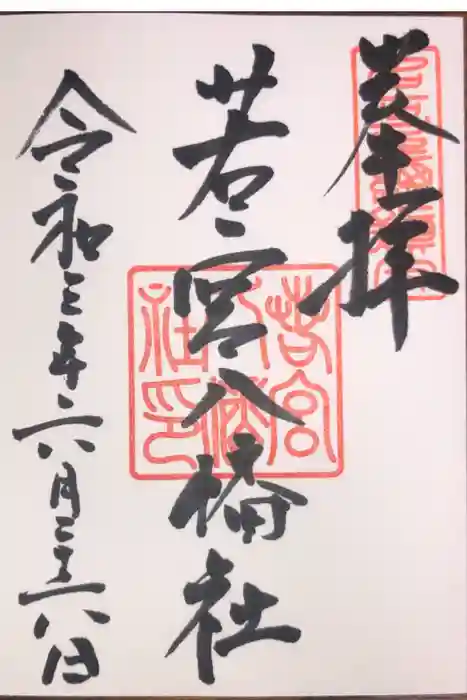 奉拝
若宮八幡社
若宮八幡社印
令和三年六月二十六日